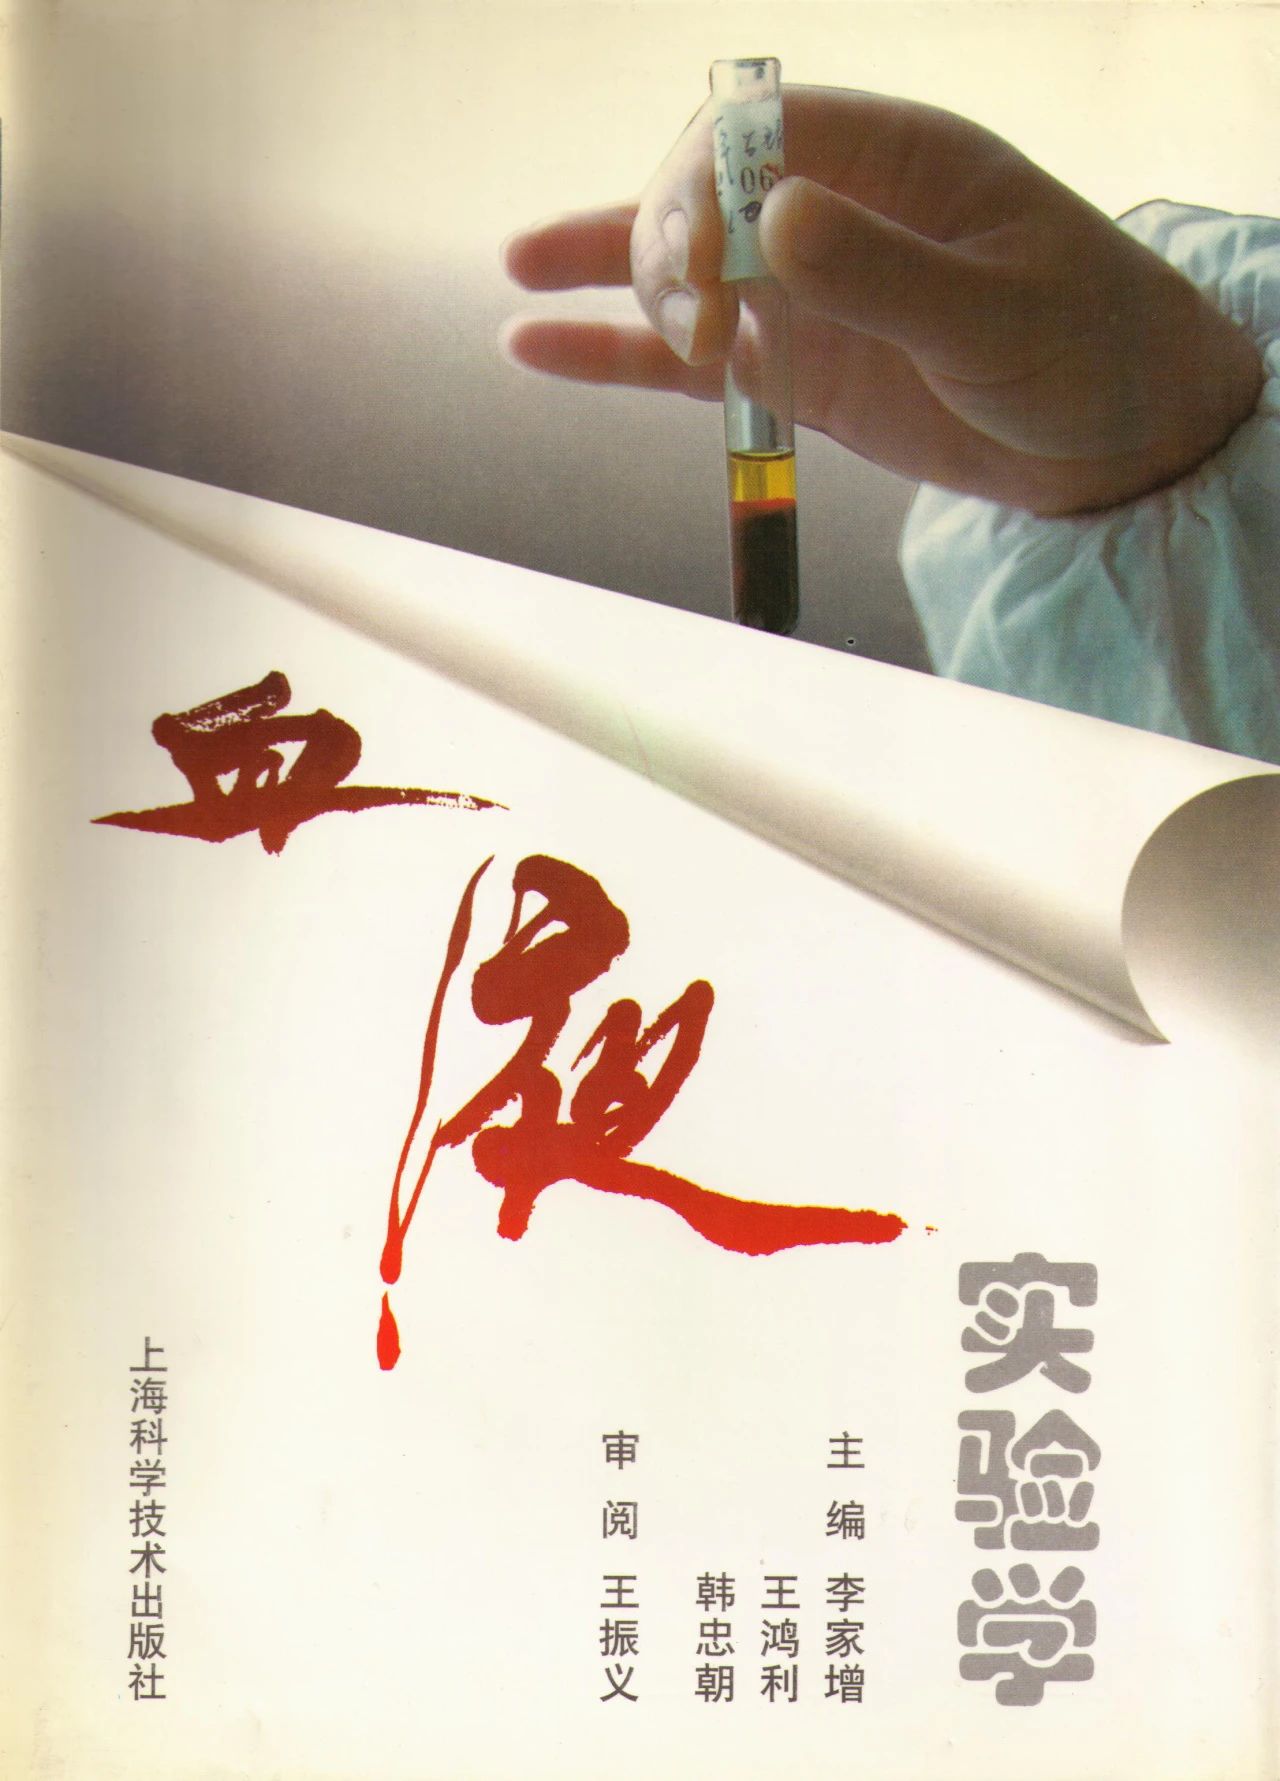 血液
实验学
主编 李家增
王鸿利
韩忠朝
审阅 王振义
上海科学技术出版社
06